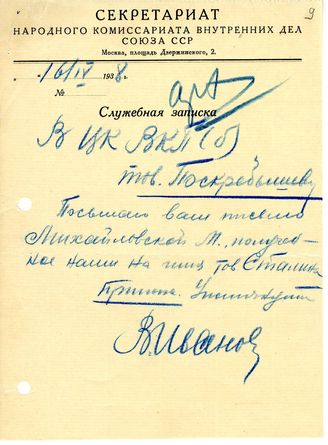 9
СЕКРЕТАРИАТ
НАРОДНОГО КОМИССАРИАТА ВНУТРЕННИХ ДЕЛ
СОЮЗА ССР
Москва, площадь Дзержинского, 2.
"16/IV 1938 г.
№
Служебная записка
В ЦК ВКП(б)
тов. Поскребышеву
Посылаю вам письмо
Михайловской М. получен-
ное нами на имя тов Сталина
В. Иванов